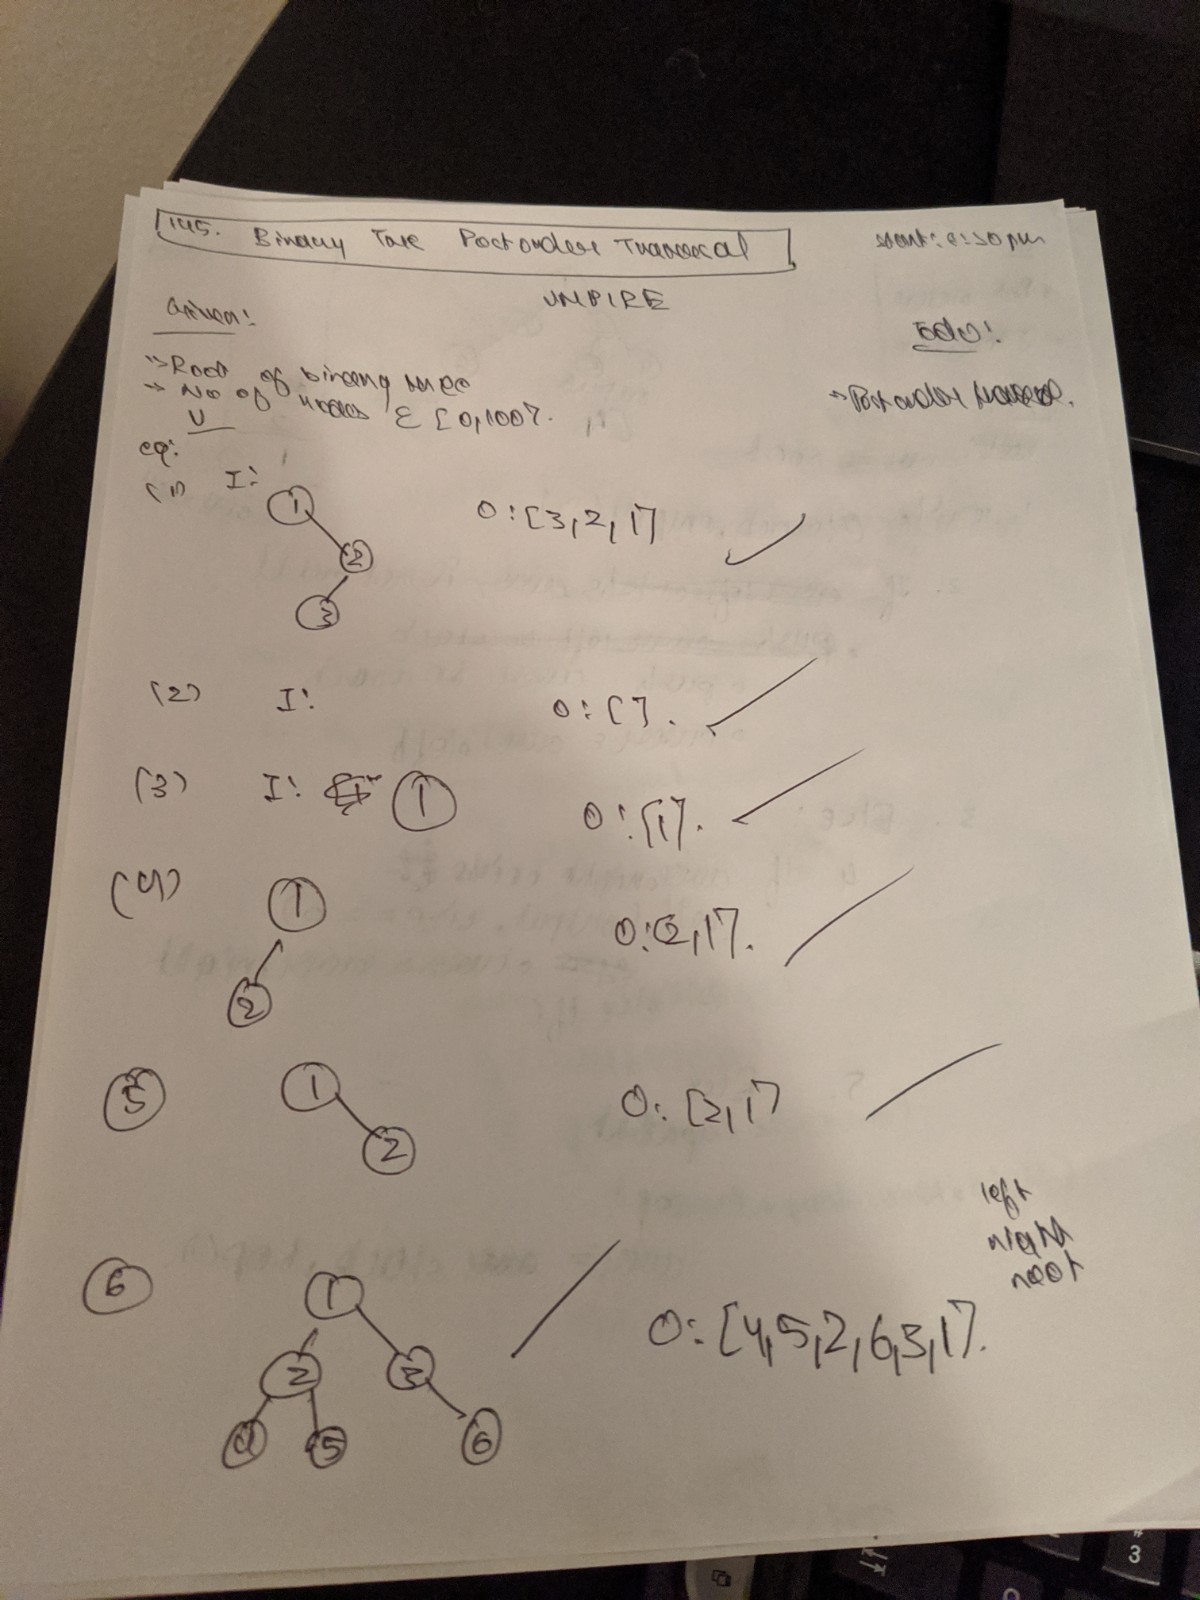 145. Binary Tree Postorder Traversal
start: 8:30 pm
UMPIRE
Given:
Todo:
→ Root of binary tree
→ No of nodes ∈ [0,100].
→ Postorder traversal.
U
eg:
(1) I: 1 2 3 O:[3,2,1]
(2) I: O:[].
(3) I: 1 O:[1].
(4) 1 2 O:[2,1].
5 1 2 O:[2,1]
left
right
root
6 1 2 3 4 5 6 O:[4,5,2,6,3,1].
3